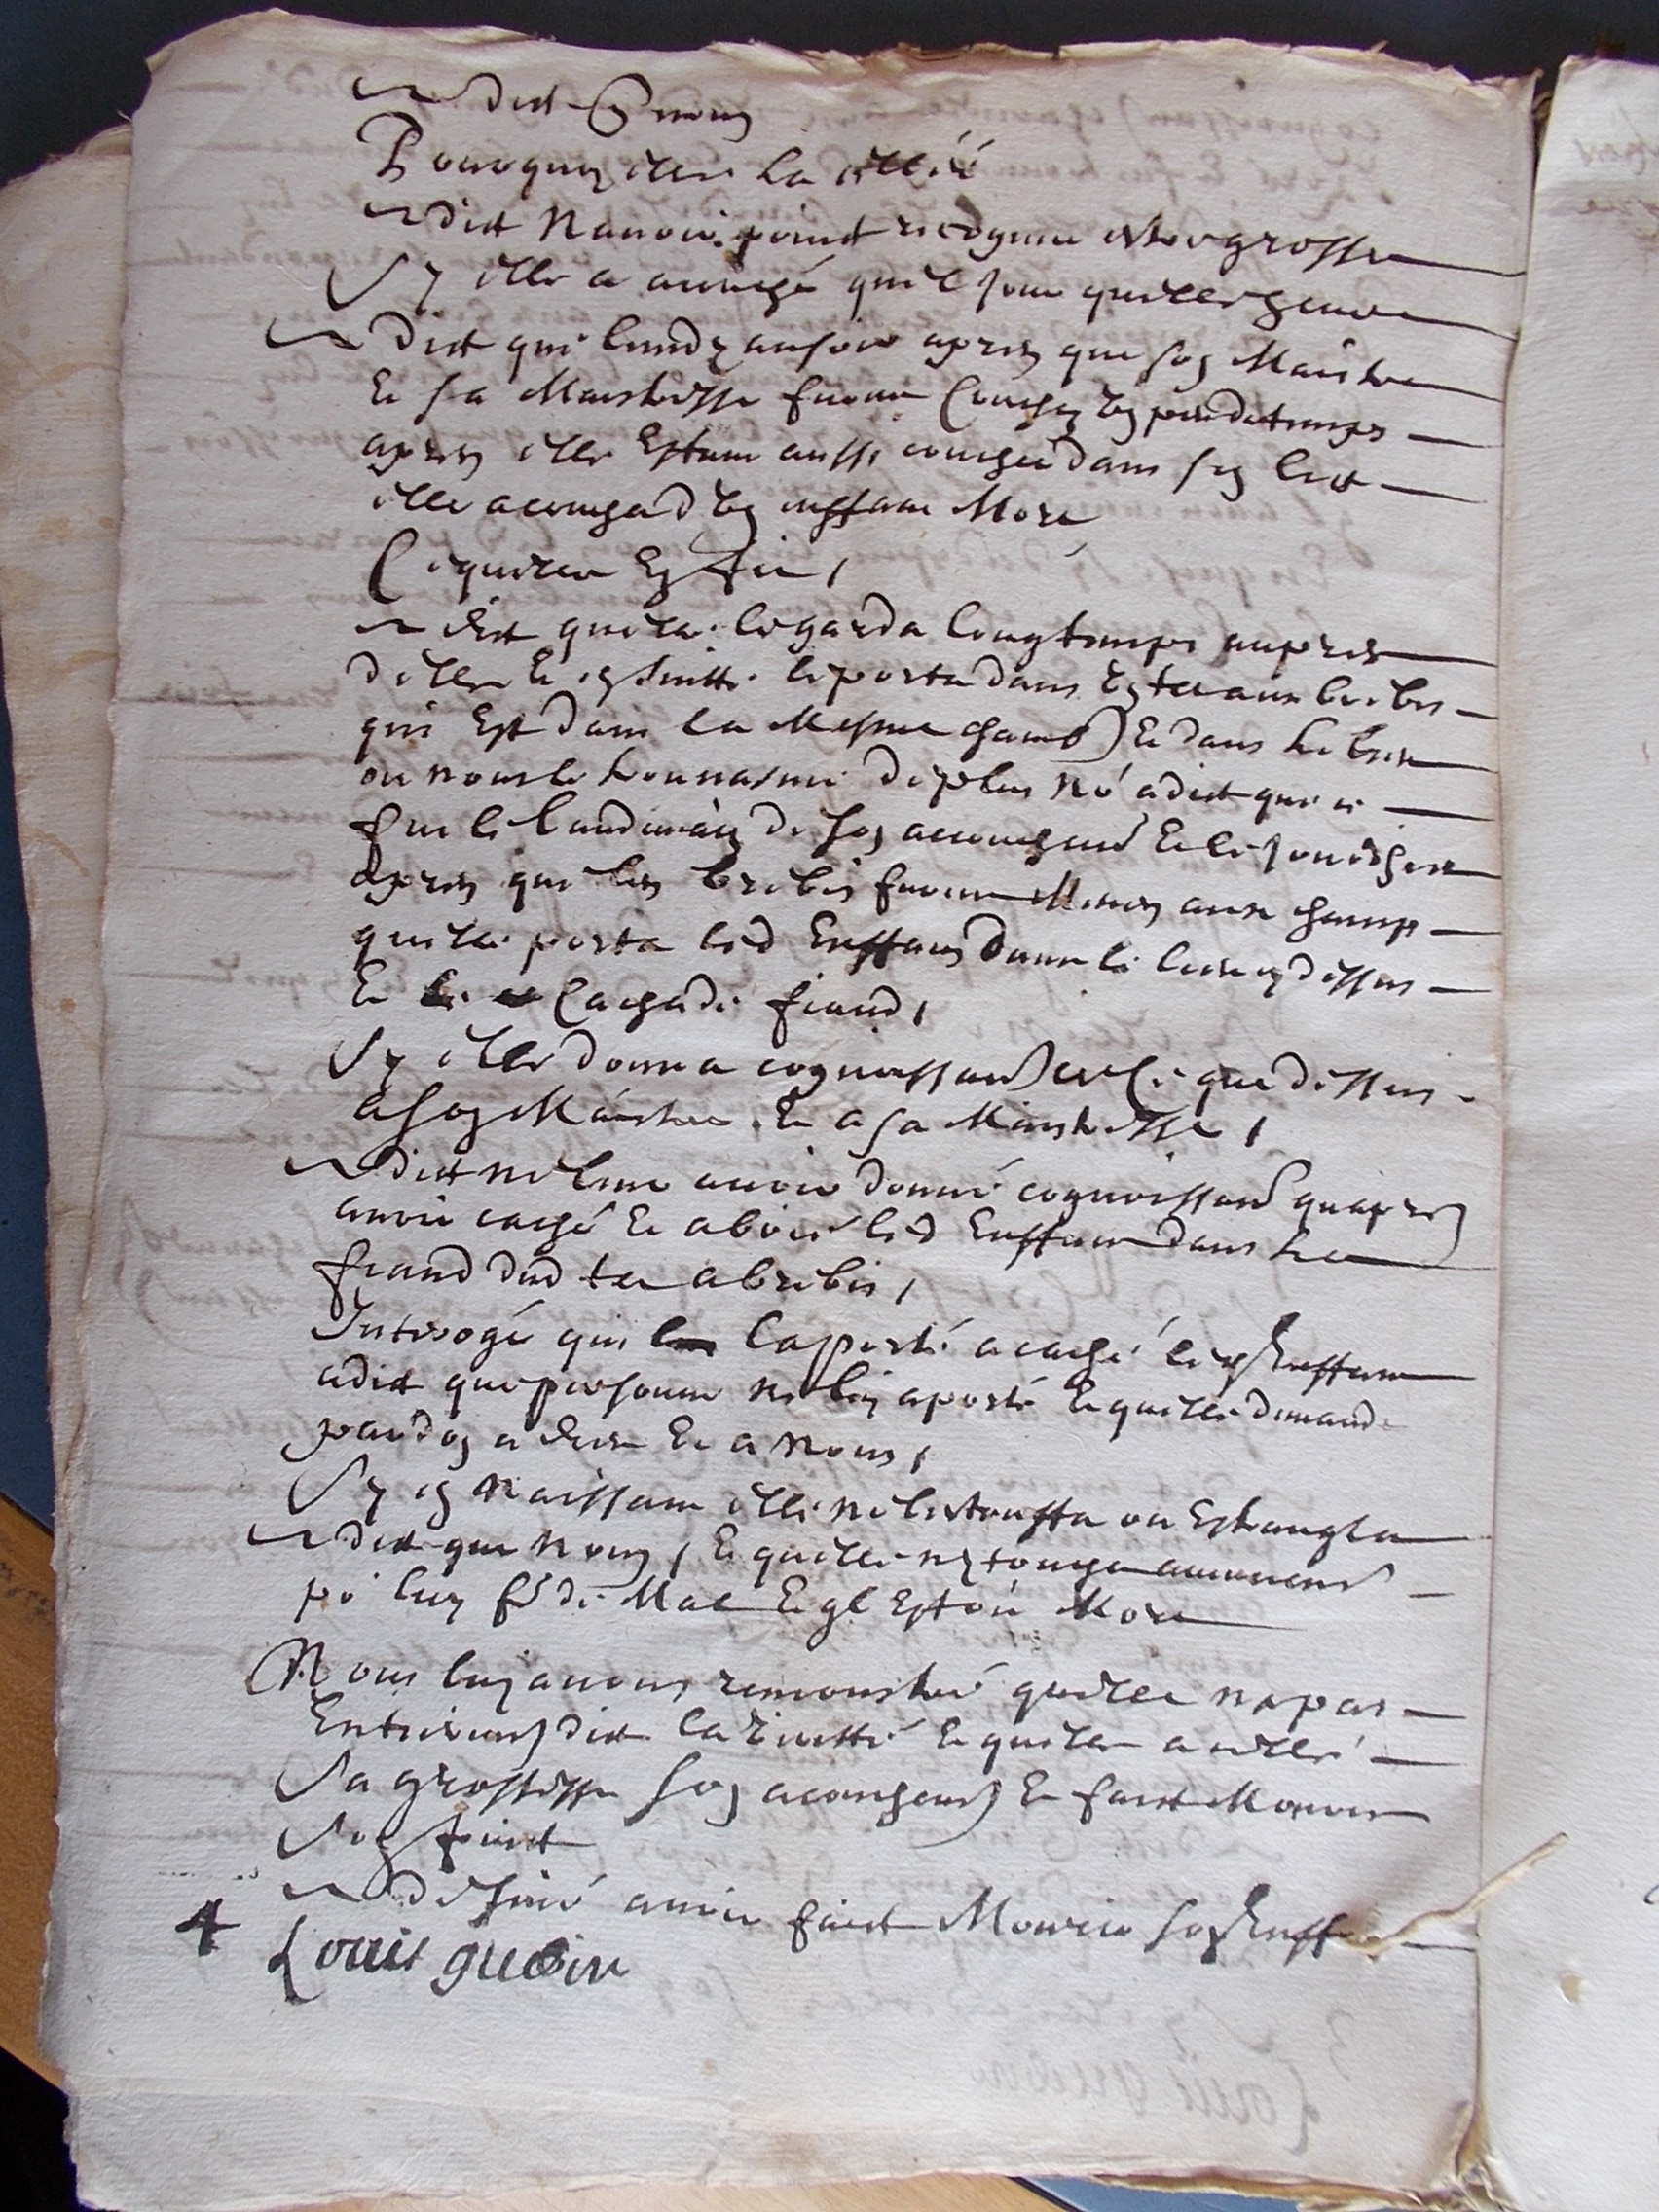 dict que nous
Pourquoy elle la cellé
dict navoir point recogneu estre grosse
Sy elle a acouché quel jour quelle heure
dict que lundy au soir apres que son Maistre
et sa Maistresse furent couchés et peu de temps
apres elle estant aussi couchée dans son lict
elle acoucha d'ung enffant Mort
Ce quelle en fit,
dict quelle le garda longtemps aupres
delle et en suitte le porta dans ung tet aux brebis
qui est dans la Mesme chamb et dans le lieu
ou nous le trouvasmes de plus no a dict que ce
fut le landemain de son acouchemt et le jour dhier
apres que les brebis furent Menés aux champs
quelle porta led enffant dans le lieu cy dessus
et le cacha de fiand,
Sy elle donna cognoissance de ce que dessus
a son Maistre et a sa Maistresse,
dict ne leur avoir donné cognoissance quapres
avoir caché et led enffant dans le
fiand dud tet a brebis,
Interogé qui la porté a caché led enffant
a dict que personne ne luy a porté et quelle demande
pardon a dieu et a nous,
Sy en naissant elle ne lestouffa ou estrangla
dict que non, et quelle ny toucha aucunemt
po luy fe de Mal et ql estoit Mort
Nous luy avons remonstré quelle na pas
entierement dict la veritté et quelle a cellé
sa grossesse son acouchement et faict Mourir
son fruict
denié avoir faict Mourir son enff
4
Louis guerin